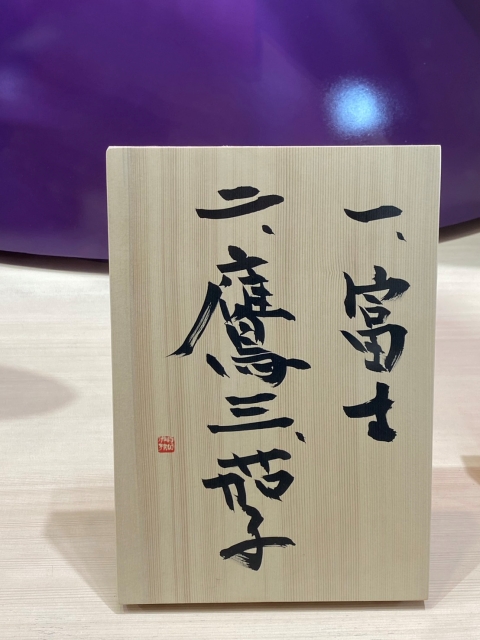 一、富士
二、鷹三、茄子